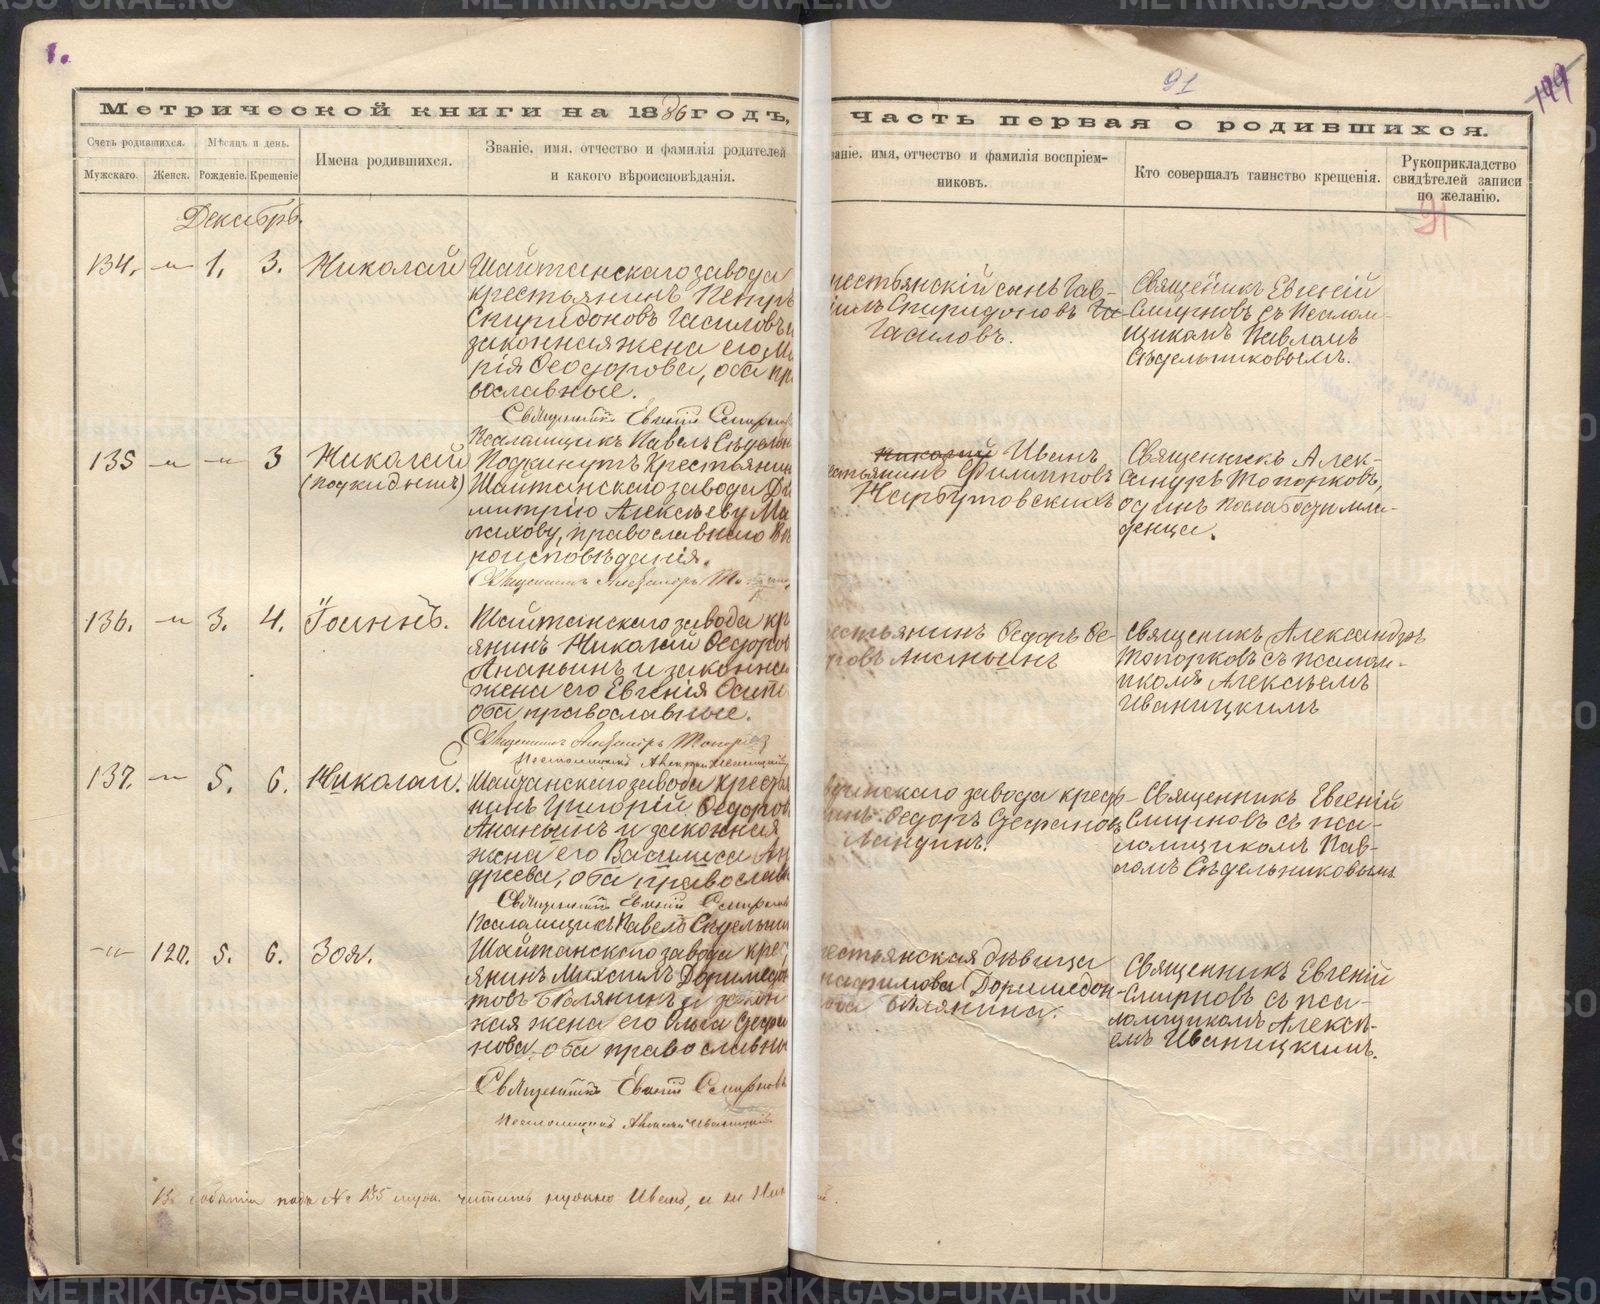 1.
91
199
Метрической книги на 1886 годъ,
часть первая о родившихся.
Счетъ родившихся.
Мѣсяцъ и день.
Мужскаго.
Женск.
Рожденіе.
Крещеніе
Имена родившихся.
Званіе, имя, отчество и фамилія родителей
и какого вѣроисповѣданія.
ваніе, имя, отчество и фамилія воспріем-
никовъ.
Кто совершалъ таинство крещенія.
Рукоприкладство
свидѣтелей записи
по желанію.
91
Декабрь.
134. „ 1. 3. Николай
Шайтанскаго завода
крестьянинъ Петръ
Спиридоновъ Гасиловъ и
законная жена его Ма
рія Ѳеодорова, оба пра
вославные.
Священникъ Евгеній Смирнов
Псаломщикъ Павелъ Сѣдельн
рестьянскій сынъ Гав-
іилъ Спиридоновъ Га-
Гасиловъ.
Священникъ Евгеній
Смирновъ съ псалом-
щикомъ Павломъ
Сѣдельниковымъ.
135 „ „ 3 Николай
(подкидышъ)
Подкинутъ Крестьянин
Шайтанскаго завода Ди
митрію Алексѣеву Ма
лахову, православнаго Вѣ
роисповѣданія.
Священникъ Александръ То
Николай Иванъ
естьянинъ Филипповъ
Нарбутовскихъ
Священникъ Алек-
сандръ Топорковъ,
одинъ
денца.
136. „ 3. 4. Іоаннъ.
Шайтанскаго завода кр
янинъ Николай Ѳедоров
Ананьинъ и законна
жена его Евгенія Осип
оба православные.
Священникъ Александръ Топорков
Псаломщикъ Алексѣй Иваницкій
естьянинъ Ѳедоръ Ѳе-
ровъ Ананьинъ
Священикъ Александръ
Топорковъ съ псалом-
пкомъ Алексѣемъ
Иваницкимъ
137. „ 5. 6. Николай.
Шайтанскаго завода кресть
нинъ Григорій Ѳедоров
Ананьинъ и законная
жена его Василиса Ан
дреева, оба православн
Священникъ Евгеній Смирновъ
Псаломщикъ Павелъ Сѣдельни
завода кресть-
инъ Ѳедоръ Стефановъ
Ландинъ.
Священникъ Евгеній
Смирновъ съ пса-
ломщикомъ Пав-
ломъ Сѣдельниковымъ
„ 120. 5. 6. Зоя.
Шайтанскаго завода крес
янинъ Михаилъ Доримедон
товъ Бѣлянинъ и закон
ная жена его Ольга Стефа
нова, оба православны
Священникъ Евгеній Смирновъ
Псаломщикъ Алексѣй Иваницкій
рестьянская дѣвица
Доримедон-
ова Бѣлянина.
Священникъ Евгеній
Смирновъ съ пса-
ломщикомъ Алексѣ-
емъ Иваницкимъ.
подъ № 135 читать нужно Иванъ, а не Ник
METRIKI.GASO-URAL.RU